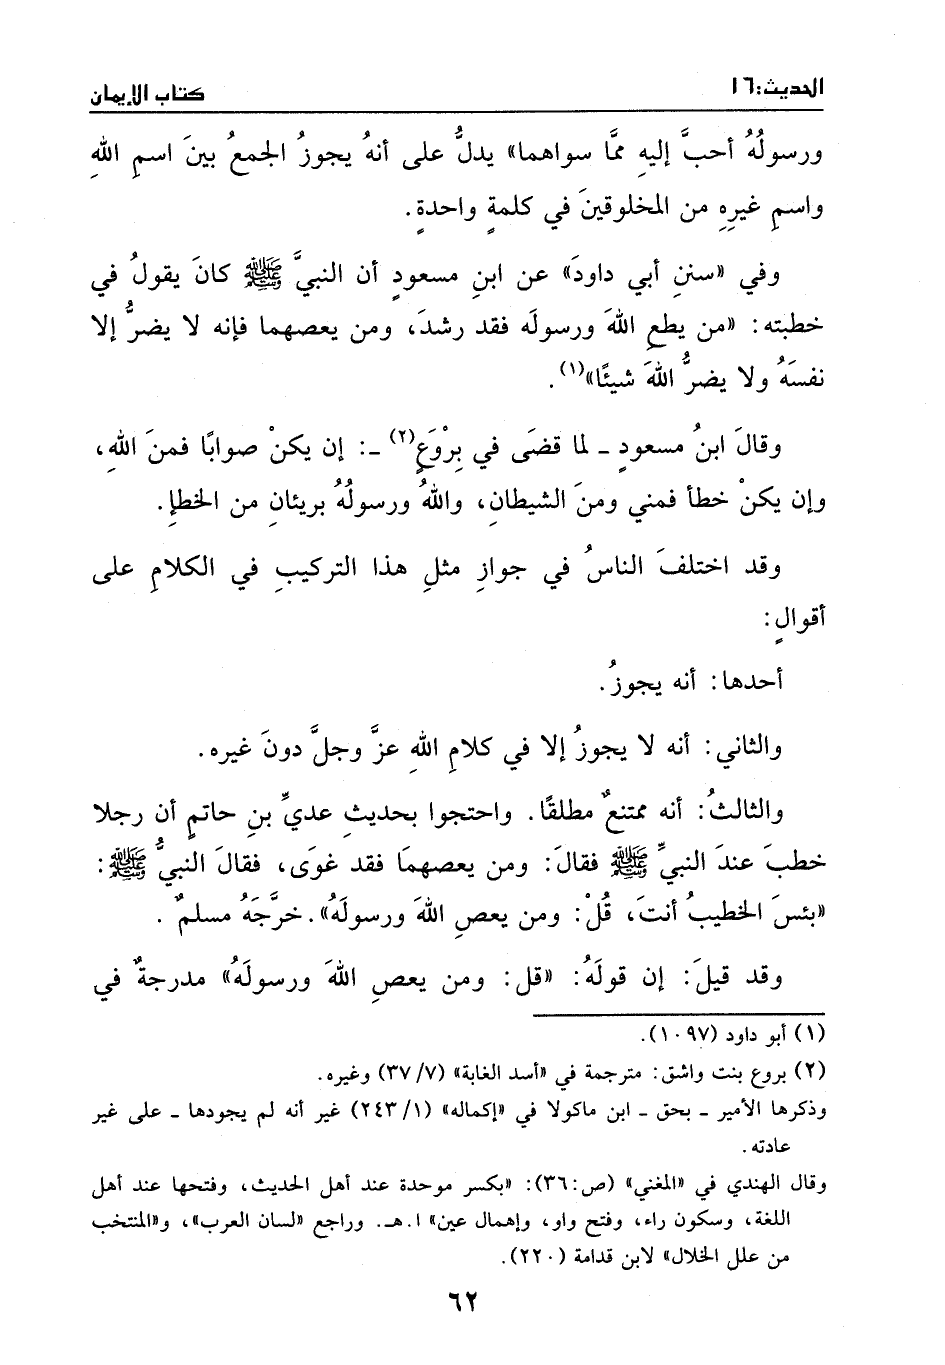 الحديث:١٦
كتاب الإيمان
ورسولُهُ أحبَّ إليهِ ممَّا سواهما» يدلُّ على أنهُ يجوزُ الجمعُ بينَ اسمِ اللهِ
واسمِ غيرِهِ من المخلوقينَ في كلمةٍ واحدةٍ.
وفي «سننِ أبي داودَ» عن ابنِ مسعودٍ أن النبيَّ ﷺ كانَ يقولُ في
خطبته: «من يطعِ اللهَ ورسولَه فقد رشدَ، ومن يعصهما فإنه لا يضرُّ إلا
نفسَهُ ولا يضرُّ اللهَ شيئًا»(١).
وقالَ ابنُ مسعودٍ ـ لما قضَى في بِرْوَعٍ(٢) ـ: إن يكنْ صوابًا فمنَ اللهِ،
وإن يكنْ خطأ فمني ومنَ الشيطانِ، واللهُ ورسولُهُ بريئانِ من الخطإِ.
وقد اختلفَ الناسُ في جوازِ مثلِ هذا التركيبِ في الكلامِ على
أقوالٍ:
أحدها: أنه يجوزُ.
والثاني: أنه لا يجوزُ إلا في كلامِ اللهِ عزَّ وجلَّ دونَ غيره.
والثالثُ: أنه ممتنعٌ مطلقًا. واحتجوا بحديثِ عديِّ بنِ حاتمٍ أن رجلا
خطبَ عندَ النبيِّ ﷺ فقالَ: ومن يعصهمَا فقد غوَى، فقالَ النبيُّ ﷺ:
«بئسَ الخطيبُ أنتَ، قُلْ: ومن يعصِ اللهَ ورسولَهُ». خرَّجَهُ مسلمٌ .
وقد قيلَ: إن قولَهُ: «قل: ومن يعصِ اللهَ ورسولَهُ» مدرجةٌ في
(١) أبو داود (١٠٩٧).
(٢) بروع بنت واشق: مترجمة في «أسد الغابة» (٣٧/٧) وغيره.
وذكرها الأمير ـ بحق ـ ابن ماكولا في «إكماله» (٢٤٣/١) غير أنه لم يجودها ـ على غير
عادته.
وقال الهندي في «المغني» (ص:٣٦): «بكسر موحدة عند أهل الحديث، وفتحها عند أهل
اللغة، وسكون راء، وفتح واو، وإهمال عين» ا.هـ. وراجع «لسان العرب»، و«المنتخب
من علل الخلال» لابن قدامة (٢٢٠).
٦٢